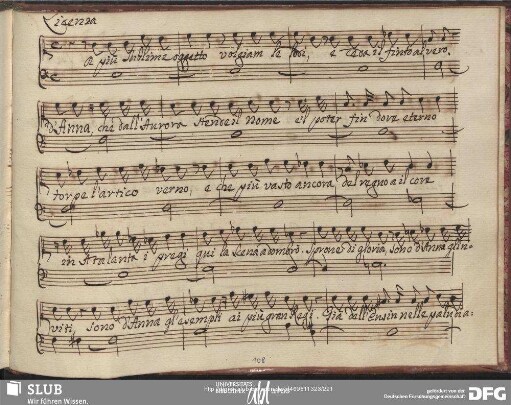 Licenza
A più sublime oggetto volgiam le luci, e ceda il finto al vero.
d'Anna, che dall'Aurora stende il nome e'l poter fin dove eterno
torpe l'artico verno; e che più vasto ancora del regno a il core
in Atalanta i pregi qui la scena adombrò. Sprone di gloria, sono d'Anna gl'in-
viti, sono d'Anna gl'esempli ai più gran Regi. Già dall'Eusin nelle palu
168
SLUB
Wir führen Wissen.
gefördert von der
Deutschen Forschungsgemeinschaft
DFG